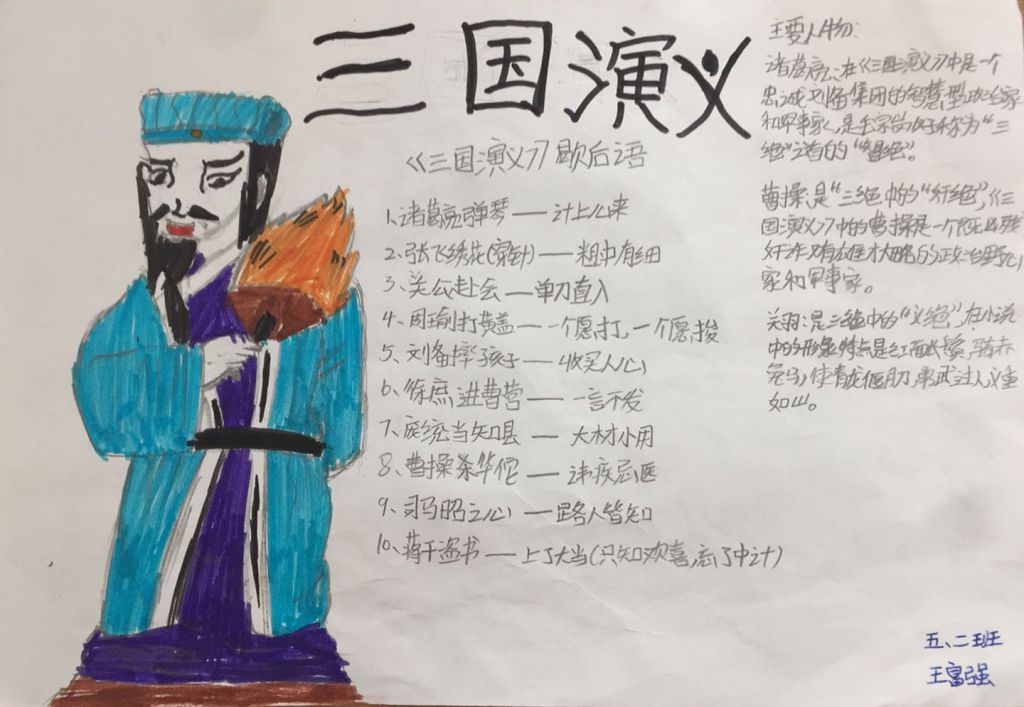 三国演义
《三国演义》歇后语
1、诸葛亮弹琴——计上心来
2、张飞绣花(穿针)——粗中有细
3、关公赴会——单刀直入
4、周瑜打黄盖——一个愿打,一个愿挨
5、刘备摔孩子——收买人心
6、徐庶进曹营——一言不发
7、庞统当知县——大材小用
8、曹操杀华佗——讳疾忌医
9、司马昭之心——路人皆知
10、蒋干盗书——上了大当(只知欢喜,忘了中计)
主要人物:
诸葛亮:在《三国演义》中是一个
忠诚刘备集团的智慧型政治家
和军事家,是毛宗岗所称为“三
绝”之首的“智绝”。
曹操:是“三绝”中的“奸绝”,《三
国演义》中的曹操是一个
奸诈又有雄才大略的政治野心
家和军事家。
关羽:是三绝中的“义绝”,在小说
中的形象特点是红面长髯,骑赤
兔马,使青龙偃月刀,勇武过人,义重
如山。
五、二班
王富强